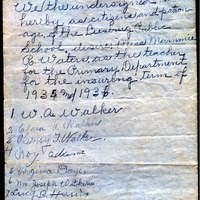 We the undersigned
hereby as citizens and patron
age of the Public
School, desire Miss Mammie
B. Waters as the teacher
for the Primary Department
for the insuring term of
1935 and 1936.
1 W. A. Walker
2 Clara Walker
3 Walker
4 Roy Adams
5 Virginia
6 Mr. Joseph Watkins
7 Lucy Harris